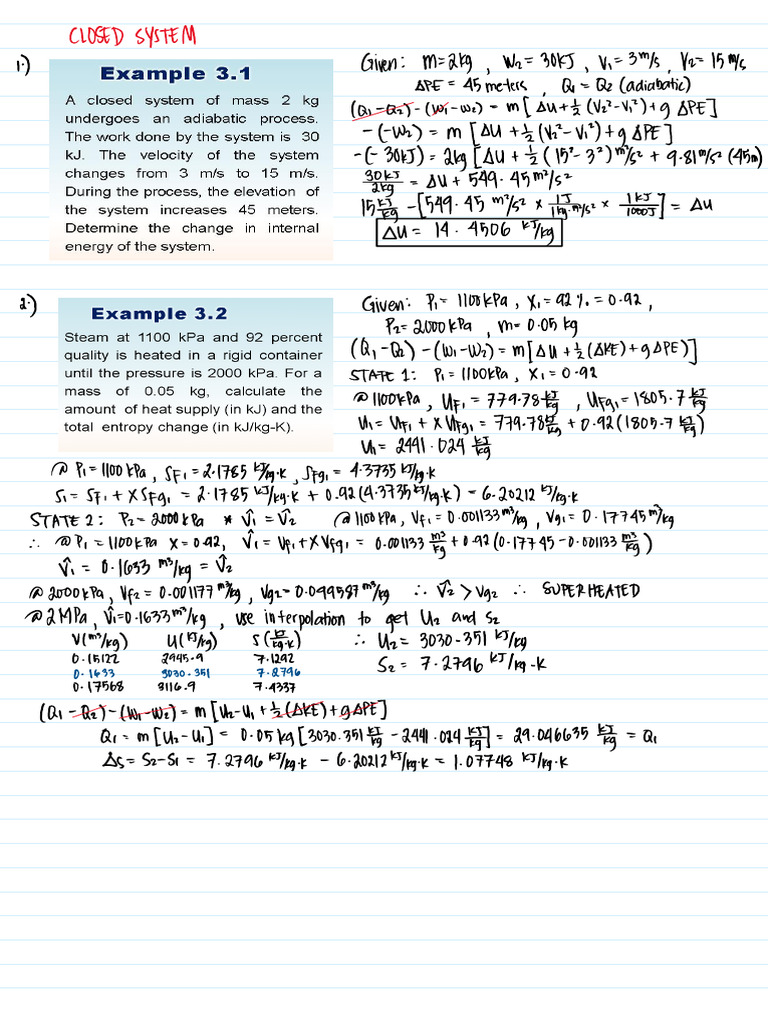 CLOSED SYSTEM
1.)
Example 3.1
A closed system of mass 2 kg
undergoes an adiabatic process.
The work done by the system is 30
kJ. The velocity of the system
changes from 3 m/s to 15 m/s.
During the process, the elevation of
the system increases 45 meters.
Determine the change in internal
energy of the system.
Given: m=2kg , W2 = 30kJ , V1 = 3 m/s , V2 = 15 m/s
ΔPE = 45 meters , Q1 = Q2 (adiabatic)
(Q1 - Q2) - (W1 - W2) = m [ ΔU + 1/2 (V2² - V1²) + g ΔPE]
-(-W2) = m [ΔU + 1/2 (V2² - V1²) + g ΔPE]
-(-30kJ) = 2kg [ΔU + 1/2 (15² - 3²) m²/s² + 9.81 m/s² (45m)
30kJ/2kg = ΔU + 549.45 m²/s²
15 kJ/kg - [549.45 m²/s² × 1J/1kg·m²/s² × 1kJ/1000J] = ΔU
ΔU = 14.4506 kJ/kg
2.)
Example 3.2
Steam at 1100 kPa and 92 percent
quality is heated in a rigid container
until the pressure is 2000 kPa. For a
mass of 0.05 kg, calculate the
amount of heat supply (in kJ) and the
total entropy change (in kJ/kg-K).
Given: P1 = 1100kPa , X1 = 92 % = 0.92 ,
P2 = 2000kPa , m = 0.05 kg
(Q1 - Q2) - (W1 - W2) = m[ΔU + 1/2 (ΔKE) + gΔPE)]
STATE 1: P1 = 1100kPa , X1 = 0.92
@ 1100kPa , Uf1 = 779.78 kJ/kg , Ufg1 = 1805.7 kJ/kg
U1 = Uf1 + X Ufg1 = 779.78 kJ/kg + 0.92 (1805.7 kJ/kg)
U1 = 2441.024 kJ/kg
@ P1 = 1100 kPa , Sf1 = 2.1785 kJ/kg·K , Sfg1 = 4.3735 kJ/kg·K
S1 = Sf1 + X Sfg1 = 2.1785 kJ/kg·K + 0.92 (4.3735 kJ/kg·K) = 6.20212 kJ/kg·K
STATE 2: P2 = 2000 kPa * V̂1 = V̂2 @ 1100 kPa , Vf1 = 0.001133 m³/kg , Vg1 = 0.17745 m³/kg
∴ @ P1 = 1100 kPa X = 0.92, V̂1 = Vf1 + X Vfg1 = 0.001133 m³/kg + 0.92 (0.17745 - 0.001133 m³/kg)
V̂1 = 0.1633 m³/kg = V̂2
@ 2000kPa , Vf2 = 0.001177 m³/kg , Vg2 = 0.099587 m³/kg ∴ V̂2 > Vg2 ∴ SUPERHEATED
@ 2 MPa , V̂1 = 0.1633 m³/kg , use interpolation to get U2 and S2
V(m³/kg) U(kJ/kg) S(kJ/kg·K) ∴ U2 = 3030.351 kJ/kg
0.15122 2945.9 7.1292 S2 = 7.2796 kJ/kg-K
0.1633 3030.351 7.2796
0.17568 3116.9 7.4337
(Q1 - Q2) - (W1 - W2) = m [U2 - U1 + 1/2 (ΔKE) + gΔPE]
Q1 = m [U2 - U1] = 0.05 kg [3030.351 kJ/kg - 2441.024 kJ/kg] = 29.046635 kJ/kg = Q1
ΔS = S2 - S1 = 7.2796 kJ/kg·K - 6.20212 kJ/kg·K = 1.07748 kJ/kg·K